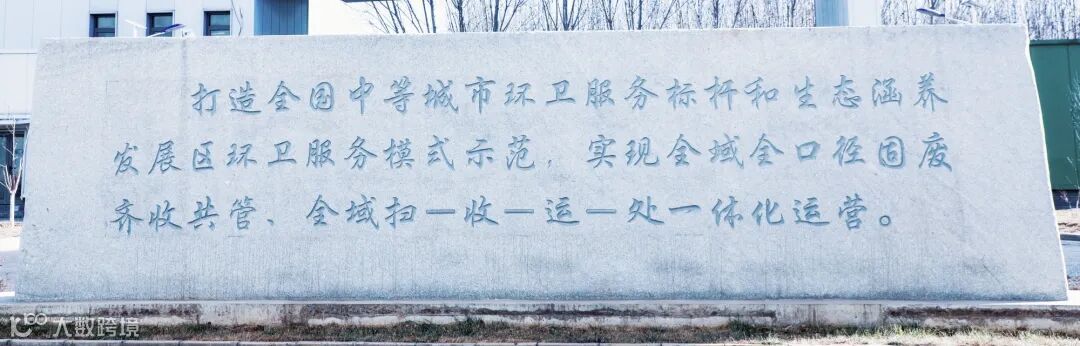 打造全国中等城市环卫服务标杆和生态涵养
发展区环卫服务模式示范，实现全域全口径固废
齐收共管、全域扫一收一运一处一体化运营。
大数跨境